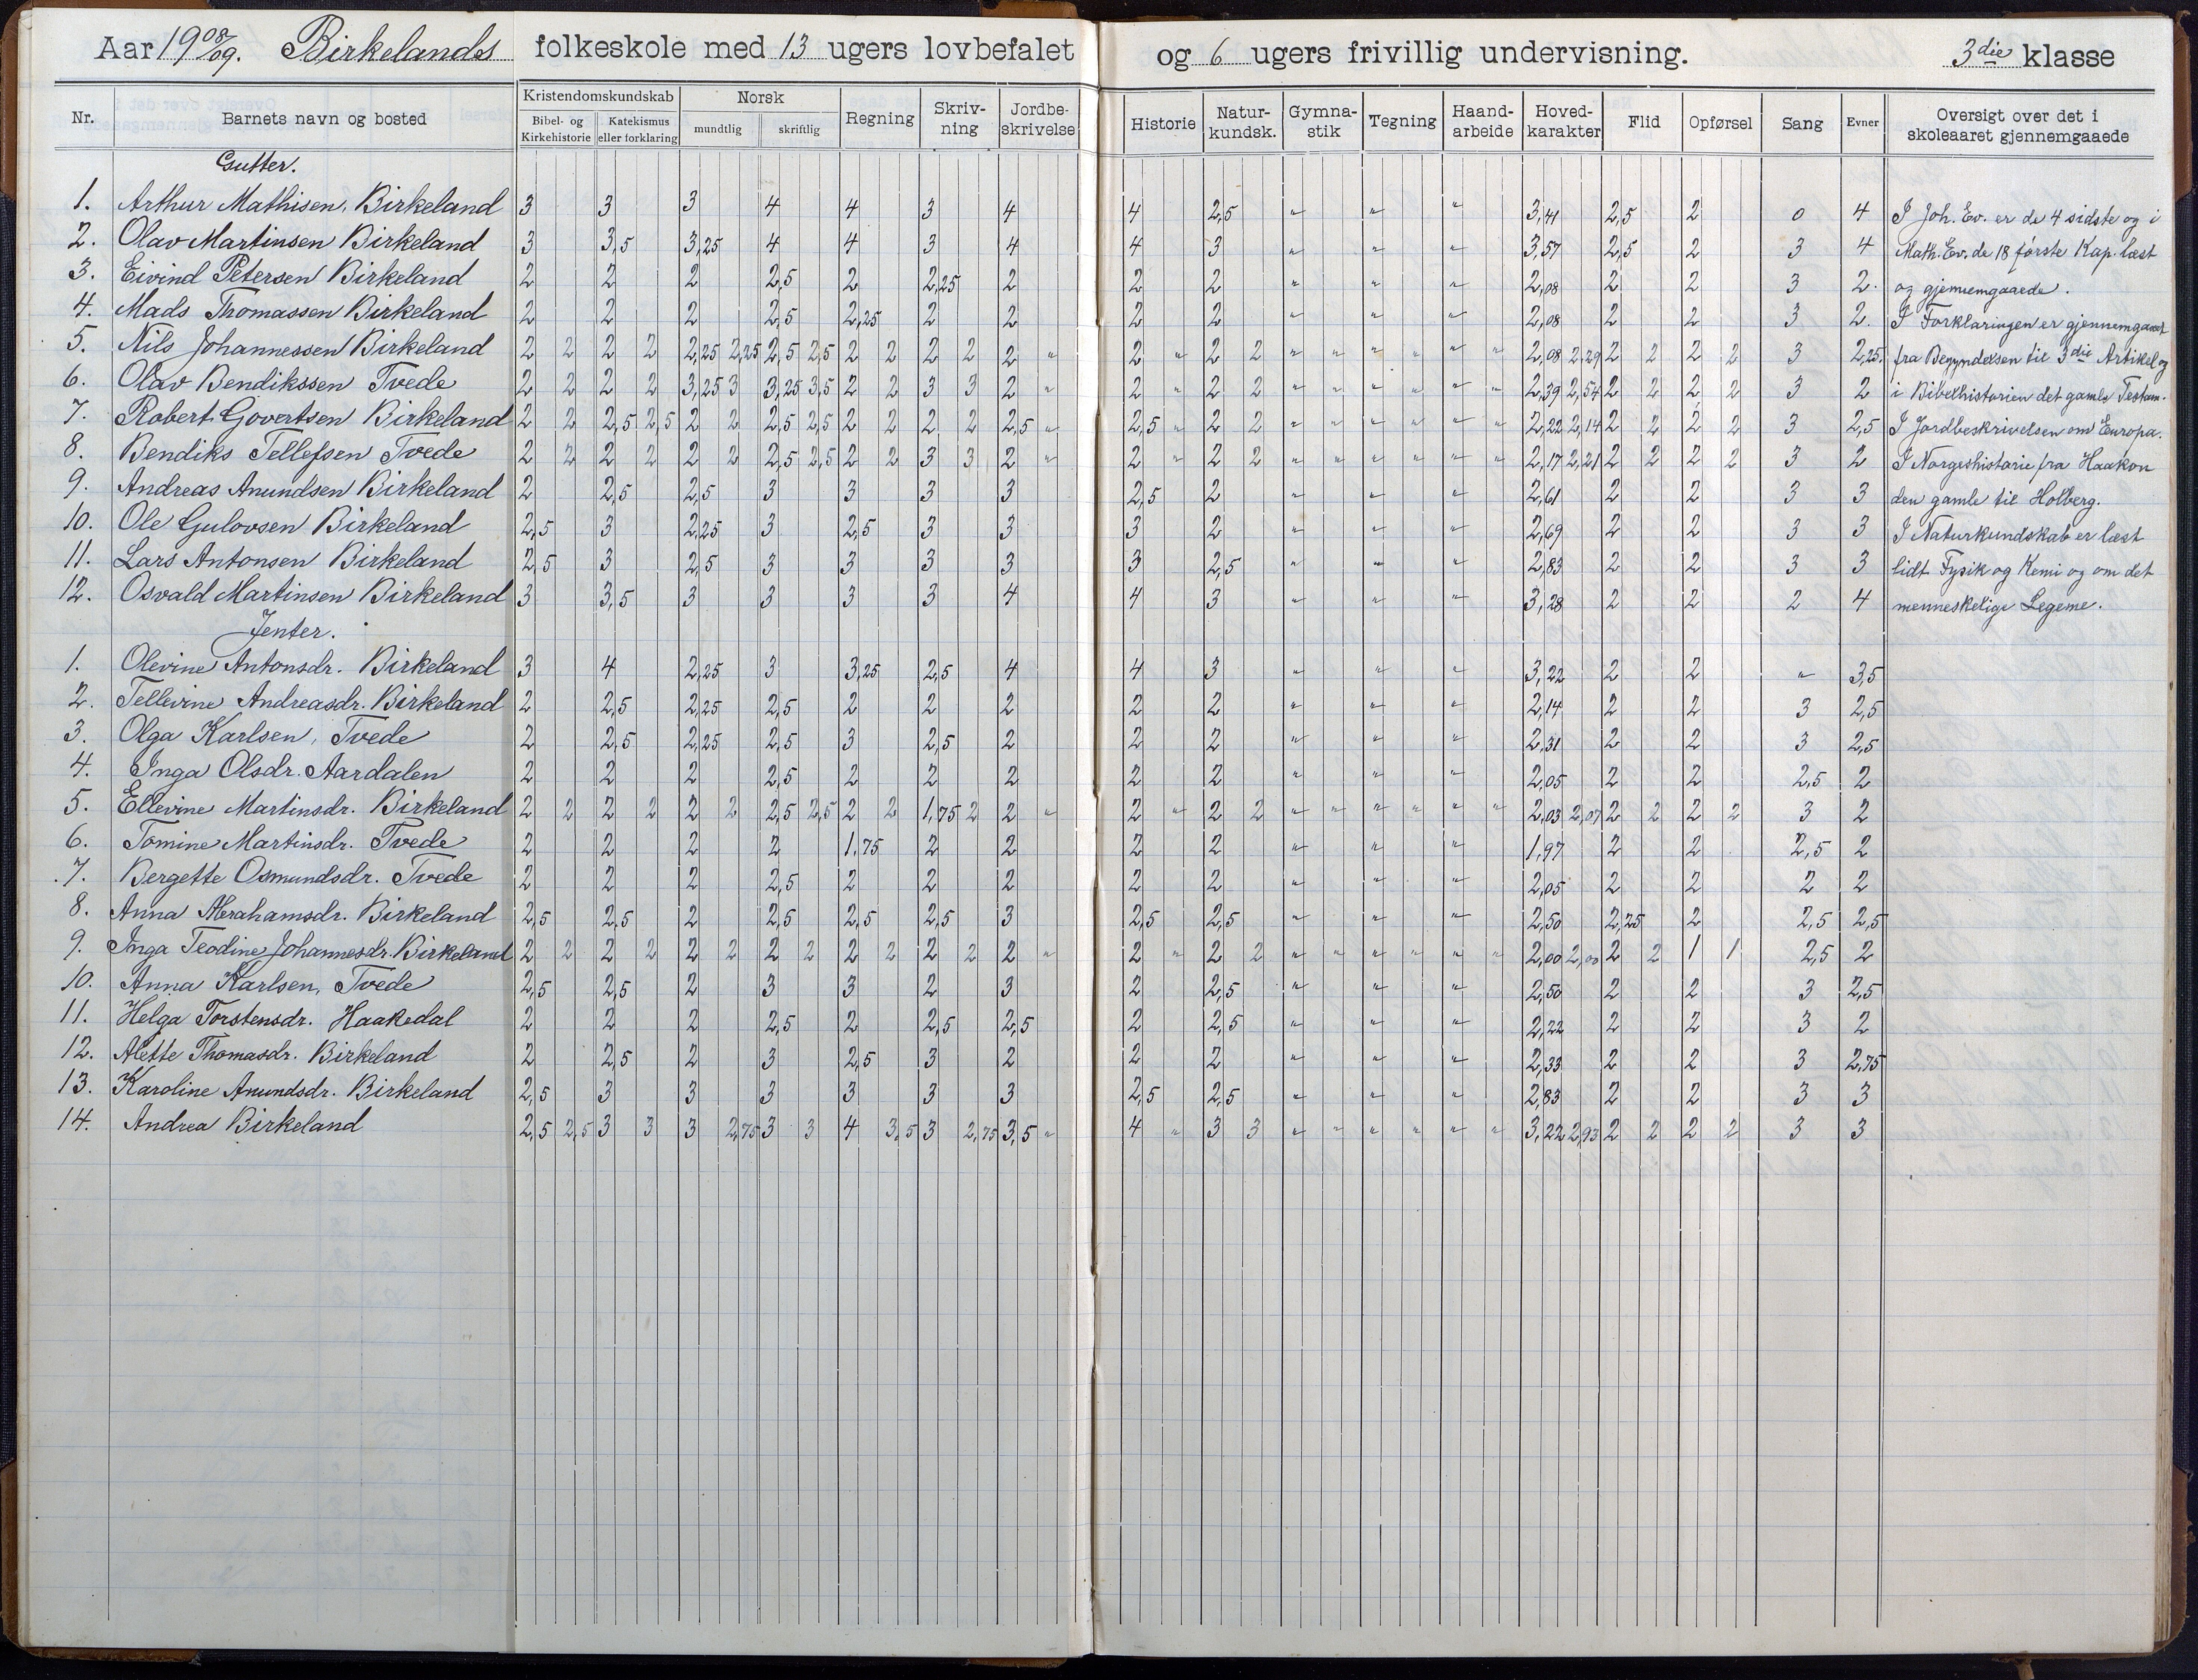 Aar 1908/09. Birkelands folkeskole med 13 ugers lovbefalet og 6 ugers frivillig undervisning. 3die klasse
Nr. Barnets navn og bosted Kristendomskundskab Bibel- og Kirkehistorie Katekismus eller forklaring Norsk mundtlig skriftlig Regning Skriv-ning Jordbe-skrivelse Historie Natur-kundsk. Gymna-stik Tegning Haand-arbeide Hoved-karakter Flid Opførsel Sang Evner Oversigt over det i skoleaaret gjennemgaaede
Gutter.
1. Arthur Mathisen, Birkeland 3 3 3 4 4 3 4 4 2,5 " " " 3,41 2,5 2 0 4 I Joh. Ev. er de 4 sidste og i
2. Olav Martinsen Birkeland 3 3,5 3,25 4 4 3 4 4 3 " " " 3,57 2,5 2 3 4 Math. Ev. de 18 første Kap. læst
3. Eivind Petersen Birkeland 2 2 2 2,5 2 2,25 2 2 2 " " " 2,08 2 2 3 2. og gjennemgaaede.
4. Mads Thomassen Birkeland 2 2 2 2,5 2,25 2 2 2 2 " " " 2,08 2 2 3 2. I Forklaringen er gjennemgaaet
5. Nils Johannessen Birkeland 2 2 2 2 2,25 2,25 2,5 2,5 2 2 2 2 2 " 2 " 2 2 " " " " " " 2,08 2,29 2 2 2 2 3 2,25. fra Begyndelsen til 3die Artikel og
6. Olav Bendikssen Tvede 2 2 2 2 3,25 3 3,25 3,5 2 2 3 3 2 " 2 " 2 2 " " " " " " 2,39 2,54 2 2 2 2 3 2 i Bibelhistorien det gamle Testam.
7. Robert Govertsen Birkeland 2 2 2,5 2,5 2 2 2,5 2,5 2 2 2 2 2,5 " 2,5 " 2 2 " " " " " " 2,22 2,14 2 2 2 2 3 2,5 I Jordbeskrivelsen om Europa.
8. Bendiks Tellefsen Tvede 2 2 2 2 2 2 2,5 2,5 2 2 3 3 2 " 2 " 2 2 " " " " " " 2,17 2,21 2 2 2 2 3 2 I Norgeshistorie fra Haakon
9. Andreas Anundsen Birkeland 2 2,5 2,5 3 3 3 3 2,5 2 " " " 2,61 2 2 3 3 den gamle til Holberg.
10. Ole Gulovsen Birkeland 2,5 3 2,25 3 2,5 3 3 3 2 " " " 2,69 2 2 3 3 I Naturkundskab er læst
11. Lars Antonsen Birkeland 2,5 3 2,5 3 3 3 3 3 2,5 " " " 2,83 2 2 3 3 lidt Fysik og Kemi og om det
12. Osvald Martinsen Birkeland 3 3,5 3 3 3 3 4 4 3 " " " 3,28 2 2 2 4 menneskelige Legeme.
Jenter.
1. Olevine Antonsdr. Birkeland 3 4 2,25 3 3,25 2,5 4 4 3 " " " 3,22 2 2 " 3,5
2. Tellevine Andreasdr. Birkeland 2 2,5 2,25 2,5 2 2 2 2 2 " " " 2,14 2 2 3 2,5
3. Olga Karlsen, Tvede 2 2,5 2,25 2,5 3 2,5 2 2 2 " " " 2,31 2 2 3 2,5
4. Inga Olsdr. Aardalen 2 2 2 2,5 2 2 2 2 2 " " " 2,05 2 2 2,5 2
5. Ellevine Martinsdr. Birkeland 2 2 2 2 2 2 2,5 2,5 2 2 1,75 2 2 " 2 " 2 2 " " " " " " 2,03 2,07 2 2 2 2 3 2
6. Tomine Martinsdr. Tvede 2 2 2 2 1,75 2 2 2 2 " " " 1,97 2 2 2,5 2
7. Bergette Osmundsdr. Tvede 2 2 2 2,5 2 2 2 2 2 " " " 2,05 2 2 2 2
8. Anna Abrahamsdr. Birkeland 2,5 2,5 2 2,5 2,5 2,5 3 2,5 2,5 " " " 2,50 2,25 2 2,5 2,5
9. Inga Teodine Johannesdr. Birkeland 2 2 2 2 2 2 2 2 2 2 2 2 2 " 2 " 2 2 " " " " " " 2,00 2,00 2 2 1 1 2,5 2
10. Anna Karlsen, Tvede 2,5 2,5 2 3 3 2 3 2 2,5 " " " 2,50 2 2 3 2,5
11. Helga Torstensdr. Haakedal 2 2 2 2,5 2 2,5 2,5 2 2,5 " " " 2,22 2 2 3 2
12. Alette Thomasdr. Birkeland 2 2,5 2 3 2,5 3 2 2 2 " " " 2,33 2 2 3 2,75
13. Karoline Anundsdr. Birkeland 2,5 3 3 3 3 3 3 2,5 2,5 " " " 2,83 2 2 3 3
14. Andrea Birkeland 2,5 2,5 3 3 3 2,75 3 3 4 3,5 3 2,75 3,5 " 4 " 3 3 " " " " " " 3,22 2,93 2 2 2 2 3 3